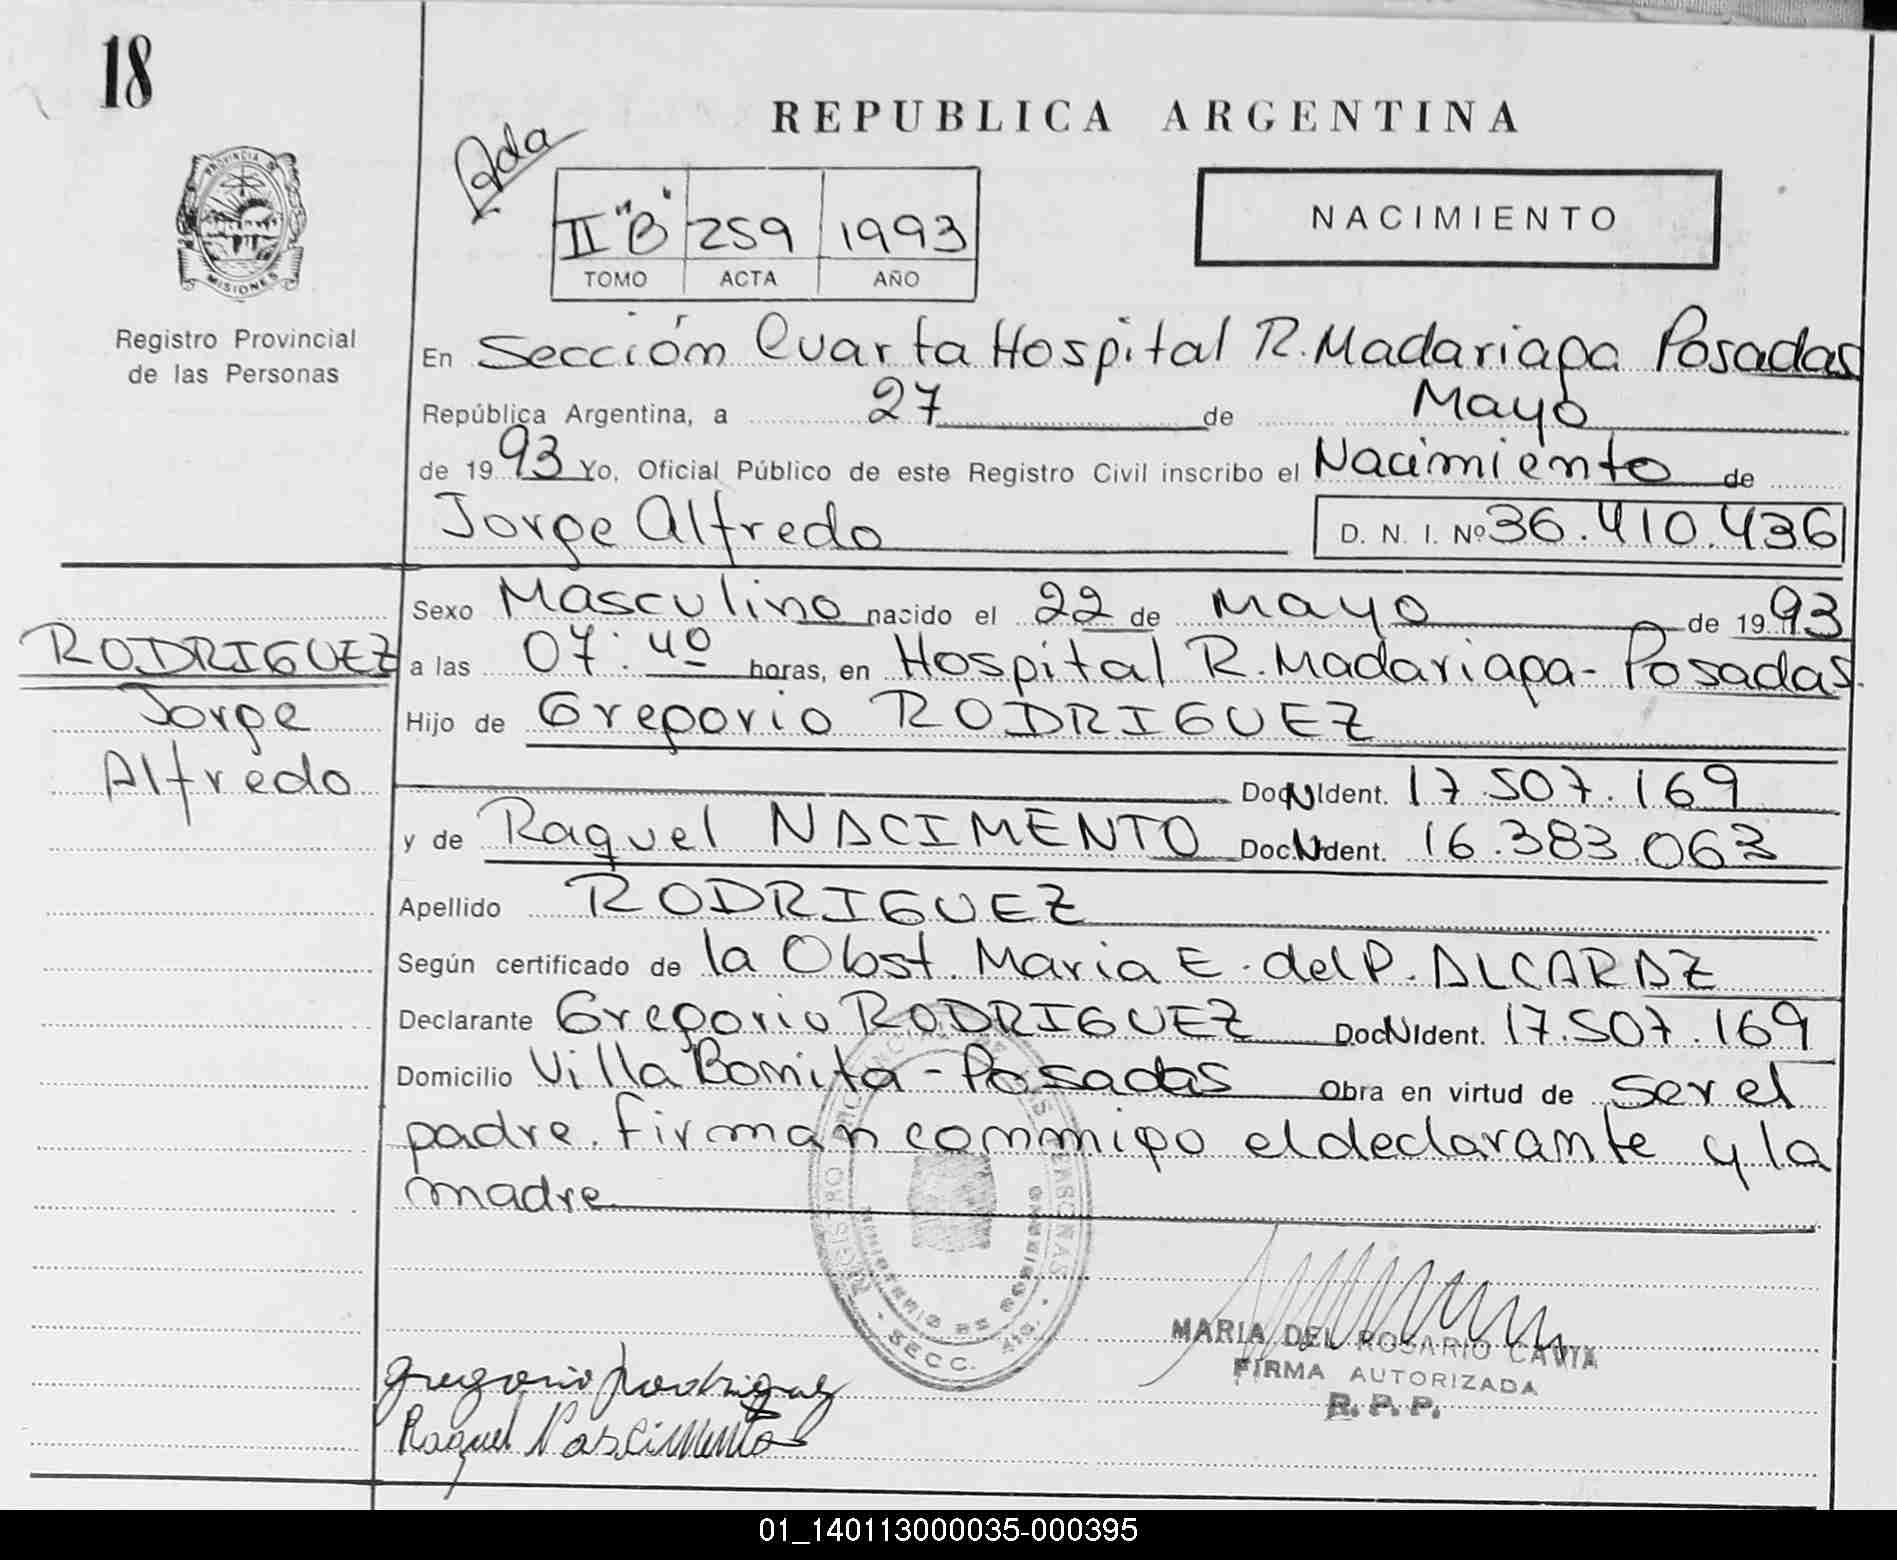 18
REPUBLICA ARGENTINA
Ada
II "B" 259 1993
TOMO ACTA AÑO
NACIMIENTO
PROVINCIA DE
MISIONES
Registro Provincial
de las Personas
En Sección Cuarta Hospital R. Madariaga Posadas
República Argentina, a 27 de Mayo
de 1993 Yo, Oficial Público de este Registro Civil inscribo el Nacimiento de
Jorge Alfredo D. N. I. Nº 36.410.436
Sexo Masculino nacido el 22 de Mayo de 1993
RODRIGUEZ
Jorge
Alfredo
a las 07:40 horas, en Hospital R. Madariaga - Posadas.
Hijo de Gregorio RODRIGUEZ
Doc N Ident. 17.507.169
y de Raquel NACIMENTO Doc. N dent. 16.383.063
Apellido RODRIGUEZ
Según certificado de la Obst. Maria E. del P. ALCARAZ
Declarante Gregorio RODRIGUEZ Doc N Ident. 17.507.169
Domicilio Villa Bonita - Posadas Obra en virtud de ser el
padre. firman conmigo el declarante y la
madre
SECC.
MARIA DEL ROSARIO CAVIA
FIRMA AUTORIZADA
R. P. P.
Gregorio Rodriguez
Raquel Nascimento
01_140113000035-000395